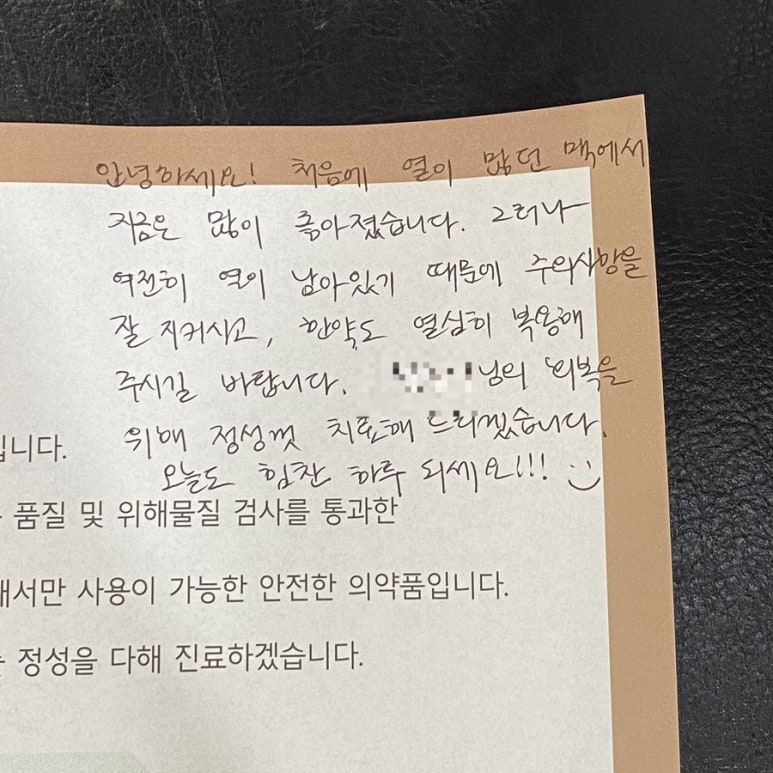 안녕하세요! 처음에 열이 많던 맥에서
지금은 많이 좋아졌습니다. 그러나
여전히 열이 남아있기 때문에 주의사항을
잘 지켜시고, 한약도 열심히 복용해
주시길 바랍니다. 님의 회복을
위해 정성껏 치료해 드리겠습니다.
입니다.
오늘도 힘찬 하루 되세요!!! :)
품질 및 위해물질 검사를 통과한
해서만 사용이 가능한 안전한 의약품입니다.
정성을 다해 진료하겠습니다.